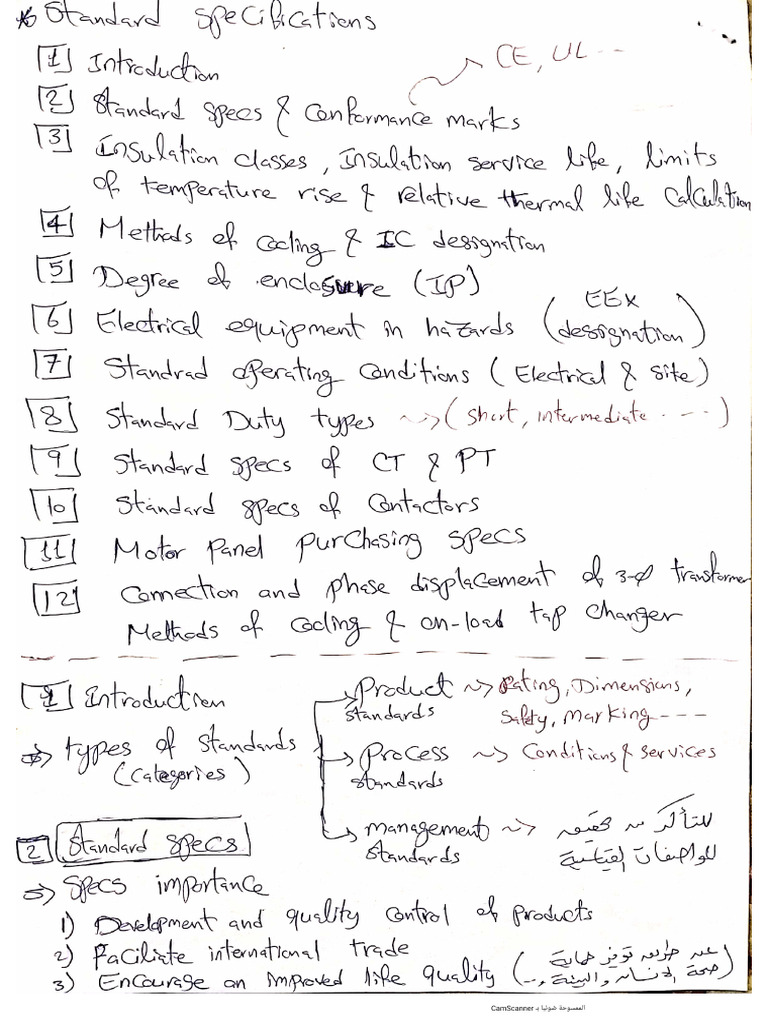 * Standard specifications
1 Introduction
2 Standard specs & conformance marks
CE, UL ---
3 Insulation classes, Insulation service life, limits
of temperature rise & relative thermal life calculation
4 Methods of cooling & IC designation
5 Degree of enclosure (IP)
6 Electrical equipment in hazards (EEX
dessignation)
7 Standrad operating Conditions (Electrical & site)
8 Standard Duty types ~> (short, intermediate - - - -)
9 Standard specs of CT & PT
10 Standard specs of Contactors
11 Motor Panel purchasing specs
12 Connection and phase displacement of 3-Ø transformer
Methods of cooling & on-load tap changer
1 Introduction
=> types of standards
(categories)
Product ~> Rating, Dimensions,
standards Safety, Marking ---
Process ~> Conditions & services
standards
management ~> للتأكد من تحقيقه
standards للمواصفات القياسية
2 Standard specs
=> specs importance
1) Development and quality control of products
2) Faciliate international trade
3) Encourage an improved life quality (عن طريق توفير حماية
صحة الانسان والبيئة, ...)
الممسوحة ضوئيا بـ CamScanner